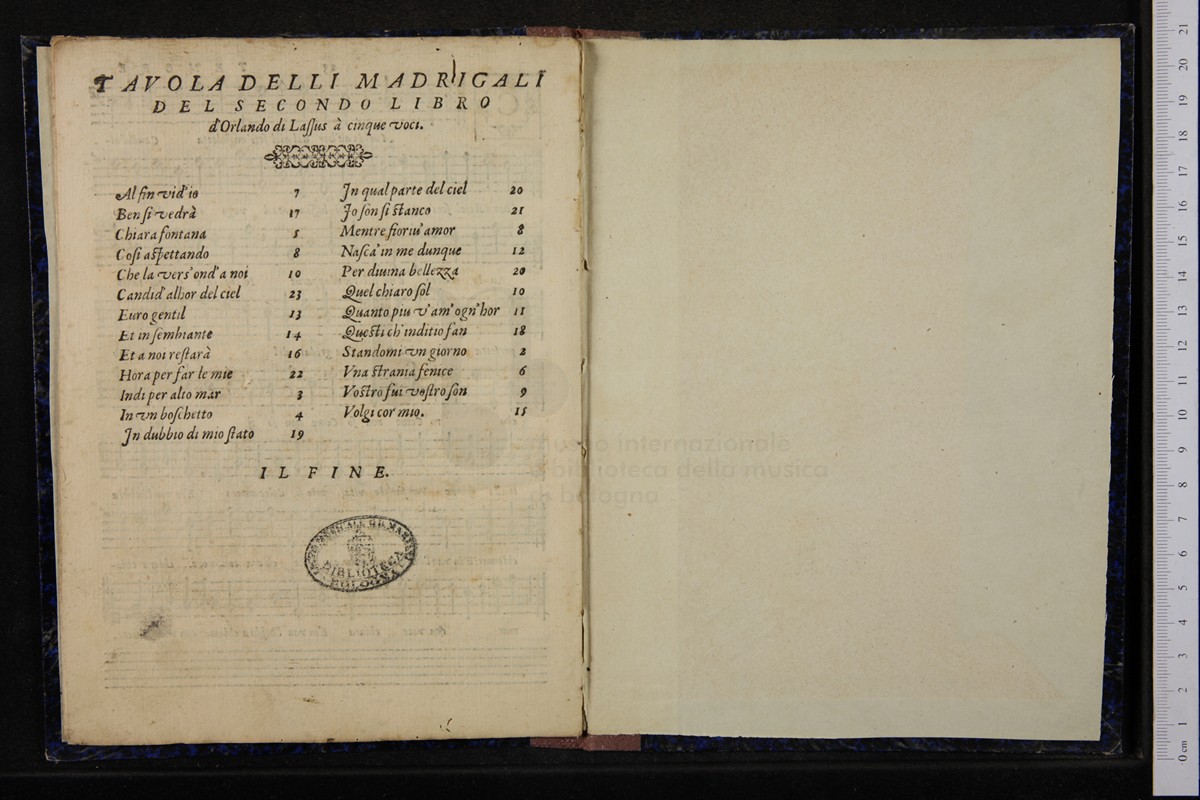 TAVOLA DELLI MADRIGALI
DEL SECONDO LIBRO
d'Orlando di Laſſus à cinque voci.
Al fin vid'io 7
Ben ſi vedrà 17
Chiara fontana 5
Coſi aſpettando 8
Che la vers' ond' a noi 10
Candid' alhor del ciel 23
Euro gentil 13
Et in ſembiante 14
Et a noi reſtarà 16
Hora per far le mie 22
Indi per alto mar 3
In vn boſchetto 4
In dubbio di mio ſtato 19
In qual parte del ciel 20
Io ſon ſi ſtanco 21
Mentre fioriu' amor 8
Naſca' in me dunque 12
Per diuina bellezza 20
Quel chiaro ſol 10
Quanto piu v'am' ogn'hor 11
Queſti ch'inditio fan 18
Standomi vn giorno 2
Vna ſtrania fenice 6
Voſtro fui voſtro ſon 9
Volgi cor mio. 15
IL FINE.
BIBLIOTECA
BOLOGNA
museo internazionale
e biblioteca della musica
di bologna
0 cm 1 2 3 4 5 6 7 8 9 10 11 12 13 14 15 16 17 18 19 20 21